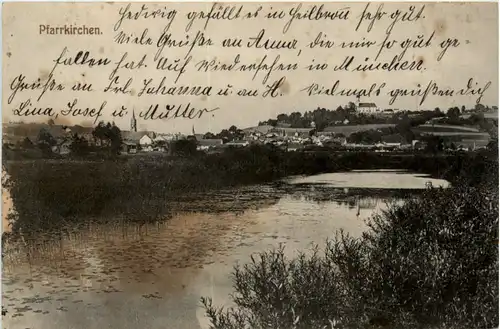 Pfarrkirchen.
Hedwig gefällt es in Heilbron̄ sehr gut.
Viele Grüße an Anna, die mir so gut ge-
fallen hat. Auf Wiedersehen in München.
Grüße an Frl. Johanna u. an H. Vielmals grüßen dich
Lina, Josef u. Mutter